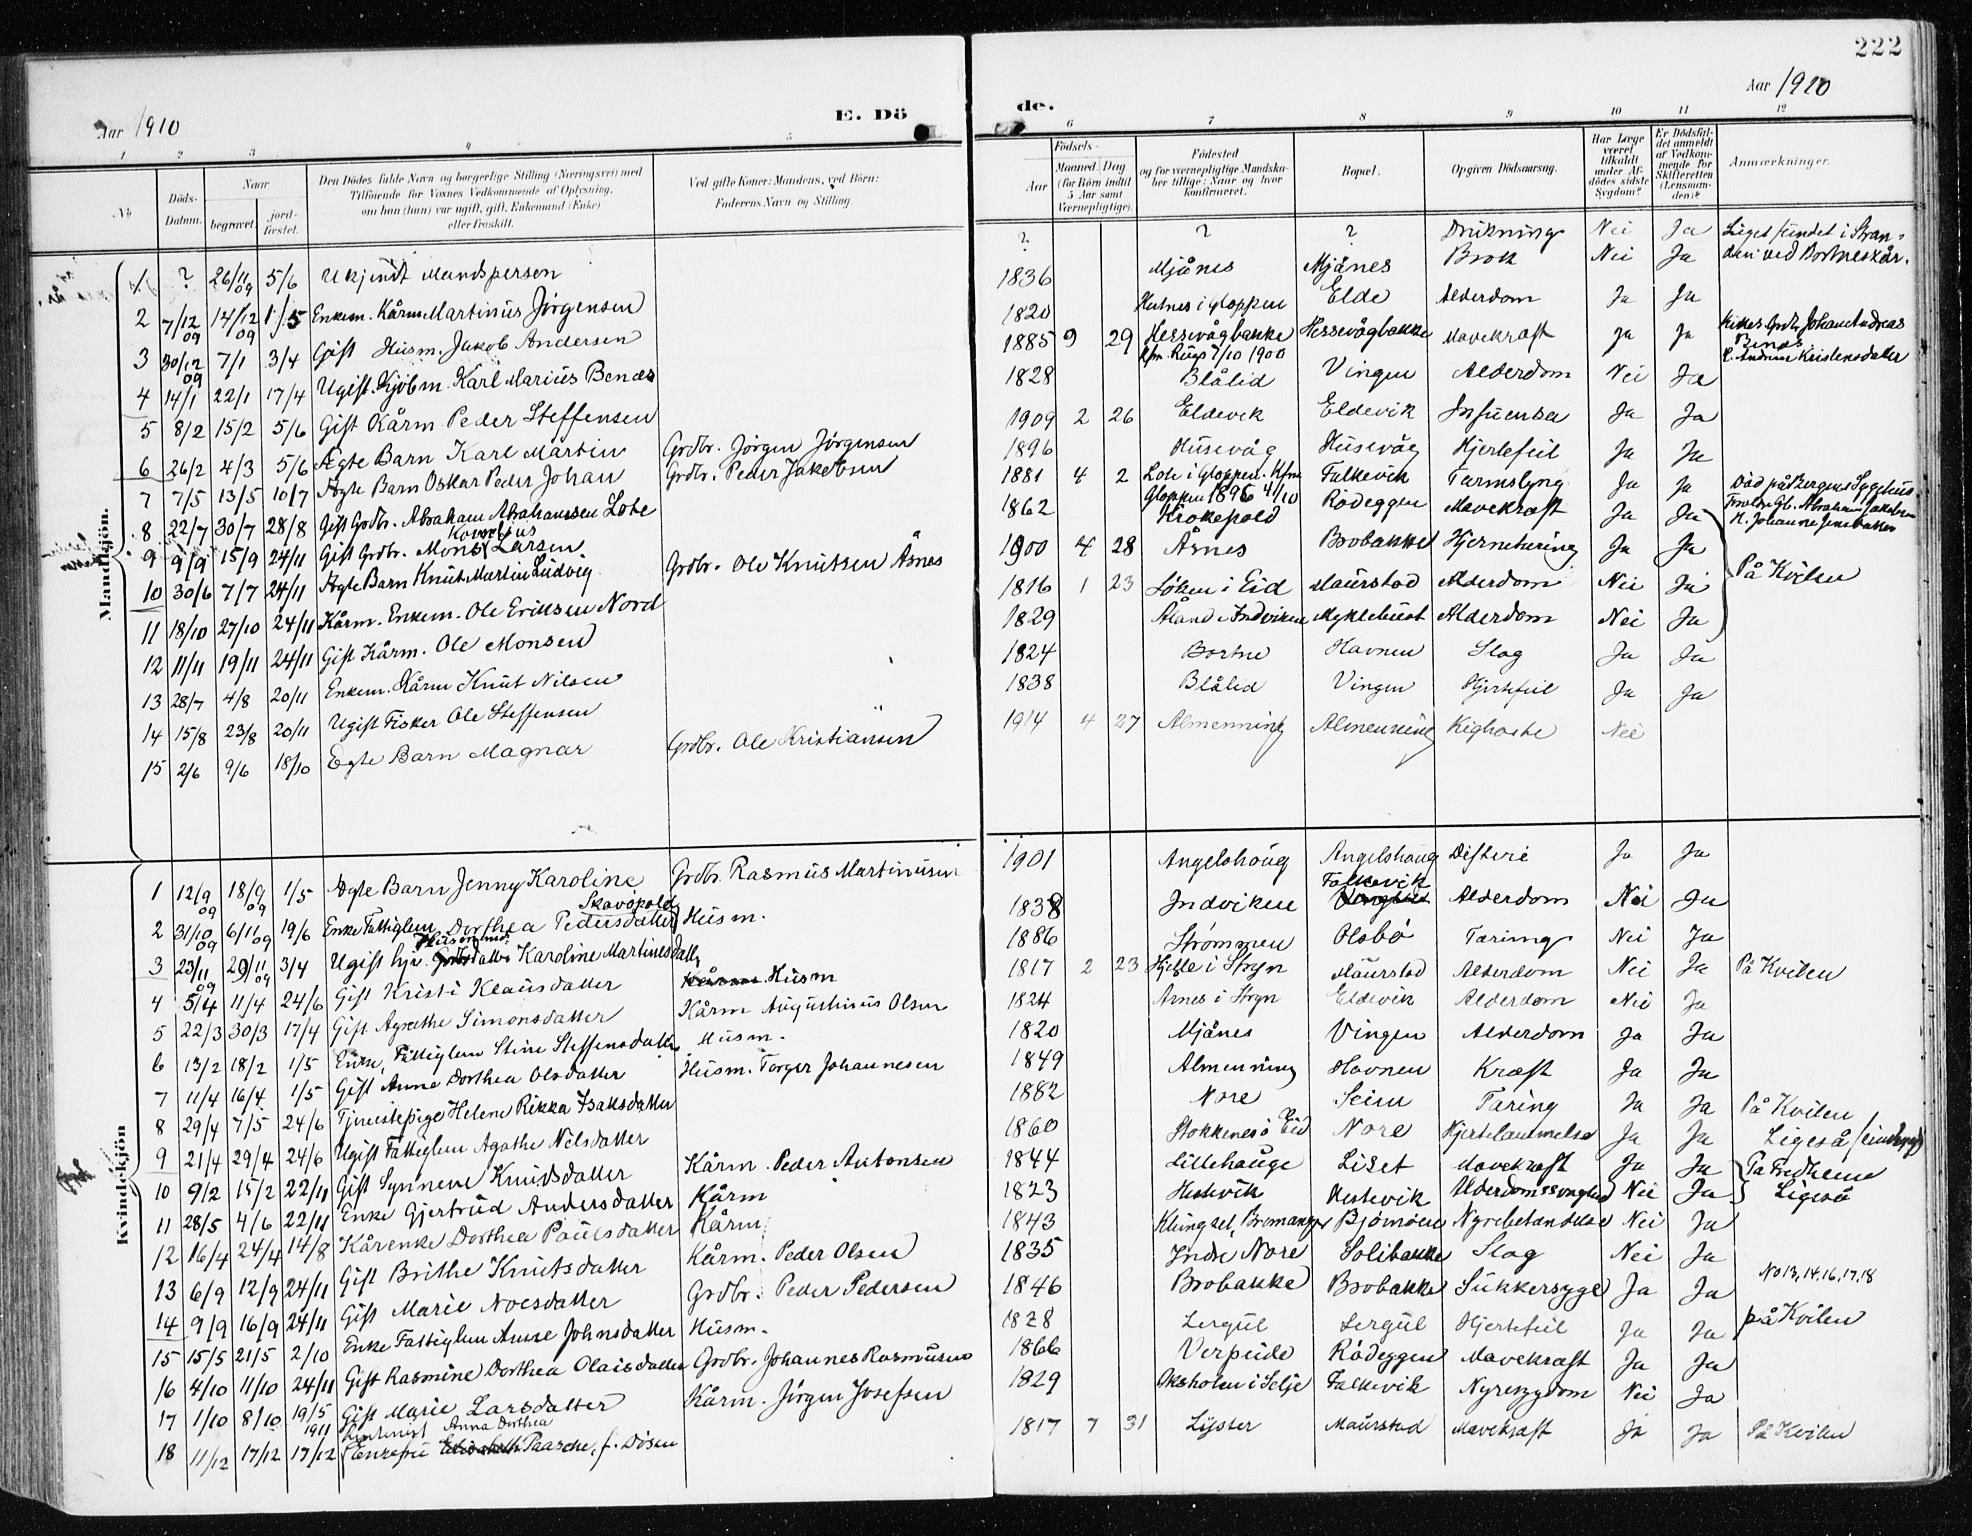 222
Aar 1910
E. Dö
de.
Aar 1910
1 2 3 4 5 6 7 8 9 10 11 12
No
Döds-Datum.
Naar
begravet. jordfæstet.
Den Dödes fulde Navn og borgerlige Stilling (Næringsvei) med
Tilföiende for Voxnes Vedkommende af Oplysning,
om han (hun) var ugift, gift, Enkemand (Enke)
eller fraskilt.
Ved gifte Koner: Mandens, ved Börn:
Faderens Navn og Stilling.
Födsels-
Aar Maaned. Dag
(for Börn indtil 5 Aar samt Værnepligtige).
Födested
og for værnepligtige Mandskaber tillige: Naar og hvor konfirmeret.
Bopæl.
Opgiven Dödsaarsag.
Har Læge været tilkaldt under Afdödes sidste Sygdom?
Er Dödsfaldet anmeldt af Vedkommende for Skifteretten (Lensmanden)?
Anmærkninger.
Mandkjön.
1 ? 26/11 09 5/6 Ukjendt Mandsperson ? ? ? Drukning Nei Ja Liget fundet i Stranden ved Bortneskår.
2 7/12 09 14/12 09 1/5 Enkem. Kårm Martinus Jörgensen 1836 Mjånes Mjånes Brok Nei Ja
3 30/12 09 7/1 3/4 Gift Husm. Jakob Andersen 1820 i Gloppen Elde Alderdom Ja Ja
4 14/1 22/1 17/4 Ugift Kjöbm. Karl Marius Benes 1885 9 29 Hessevågbakke 7/10 1900 Hessevågbakke Mavekræft Ja Ja Johan Andreas Benes Kristensdatter
5 8/2 15/2 5/6 Gift Kårm Peder Steffensen 1828 Blålid Vingen Alderdom Nei Ja
6 26/2 4/3 5/6 Ægte Barn Karl Martin Grdbr. Jörgen Jörgensen 1909 2 26 Eldevik Eldevik Influensa Ja Ja
7 7/5 13/5 10/7 Ægte Barn Oskar Peder Johan Grdbr. Peder Jakobsen 1896 Husevåg Husevåg Hjertefeil Ja Ja
8 22/7 30/7 28/8 Gift Grdbr. Abraham Abrahamssen Lote 1881 4 2 Lote i Gloppen. Kfm Gloppen 1896 4/10 Falkevik Tarmslyng Ja Ja Död på Bergens Sygehus Abraham Jakobsen Johanne Jensdatter
9 9/9 15/9 24/11 Gift Grdbr. Mons Larsen 1862 Krokepold Rödeggen Mavekræft Ja Ja
10 30/6 7/7 24/11 Ægte Barn Knut Martin Ludvig Grdbr. Ole Knutsen Åsnes 1900 4 28 Åsnes Brobakke Hjernetæring Ja Ja På Kvilen
11 18/10 27/10 24/11 Kårm. Enkem. Ole Eriksen Nord 1816 1 23 Löken i Eid Maurstad Alderdom Nei Ja
12 11/11 19/11 24/11 Gift Kårm. Ole Monsen 1829 Åland i Indviken Myklebust Alderdom Nei Ja
13 28/7 4/8 20/11 Enkem. Kårm Knut Nilsen 1824 Bortne Havnen Slag Ja Ja
14 15/8 23/8 20/11 Ugift Fisker Ole Steffensen 1838 Blålid Vingen Hjertefeil Ja Ja
15 2/6 9/6 18/10 Egte Barn Magnar Grdbr. Ole Kristiansen 1914 4 27 Almenning Almenning Kighoste Nei
Kvindekjön
1 12/9 09 18/9 09 1/5 Ægte Barn Jenny Karoline Grdbr. Rasmus Martinusen 1901 Angelshaug Angelshaug Difteri Ja Ja
2 31/10 09 6/11 09 19/6 Enke Fattiglem Dorthea Pedersdatter Skavöpold Husm. 1838 Indviken Falkevik Alderdom Nei Ja
3 23/11 09 29/11 09 3/4 Ugift Karoline Martinusdatter 1886 Strømmen Olsbö Tæring Nei Ja
4 5/4 11/4 24/6 Gift Kristi Klausdatter Husm 1817 2 23 Hjelle i Stryn Maurstad Alderdom Nei Ja På Kvilen
5 22/3 30/3 17/4 Gift Agathe Simonsdatter Kårm Augustinus Olsen 1824 Arnes i Stryn Eldevik Alderdom Nei Ja
6 13/2 18/2 1/5 Enke, Fattiglem Stine Steffensdatter Husm. 1820 Mjånes Vingen Alderdom Ja Ja
7 11/4 16/4 1/5 Gift Anna Dorthea Olsdatter Husm. Torger Johannesen 1849 Almenning Havnen Kræft Ja Ja
8 29/4 7/5 24/6 Tjenestepige Helene Rikka Isaksdatter 1882 Nore Seim Tæring Ja Ja På Kvilen
9 21/4 29/4 24/6 Ugift Fattiglem Agathe Nilsdatter 1860 Stokkenes i Eid Nore Hjertelammelse Ja Ja Ligeså
10 9/2 15/2 22/11 Gift Synneve Knudsdatter Kårm. Peder Antonsen 1844 Lillehauge Liset Mavekræft Ja Ja På Fredheim
11 28/5 4/6 22/11 Enke Gjertrud Andersdatter Kårm 1823 Hestevik Hestevik Alderdomssvaghed Nei Ja Ligeså
12 16/4 24/4 14/8 Kårenke Dorthea Paulsdatter Kårm 1843 Klungset, Bremanger Björnöen Nyrebetændelse Nei Ja
13 6/9 12/9 24/11 Gift Brithe Knutsdatter Kårm. Peder Olsen 1835 Indre Nore Solibakke Slag Nei Ja
14 9/9 16/9 24/11 Gift Marie Noesdatter Grdbr. Peder Pedersen 1846 Brobakke Brobakke Sukkersyge Ja Ja No 13, 14, 16, 17, 18 på Kvilen
15 15/5 21/5 2/10 Enke Fattiglem Anne Johnsdatter Husm. 1828 Lergul Lergul Hjertefeil Ja Ja
16 4/10 11/10 24/11 Gift Rasmine Dorthea Olaisdatter Grdbr. Johannes Rasmusen 1866 Verpeide Rödeggen Mavekræft Ja Ja
17 1/10 8/10 19/5 1911 Gift Marie Larsdatter Kårm. Jörgen Josefsen 1829 Oksholm i Selje Falkevik Nyresygdom Nei Ja
18 11/12 17/12 17/12 Anna Dorthea Elisabeth Paasche, f. Dösen 1817 7 31 Lyster Maurstad Mavekræft Ja Ja På Kvilen